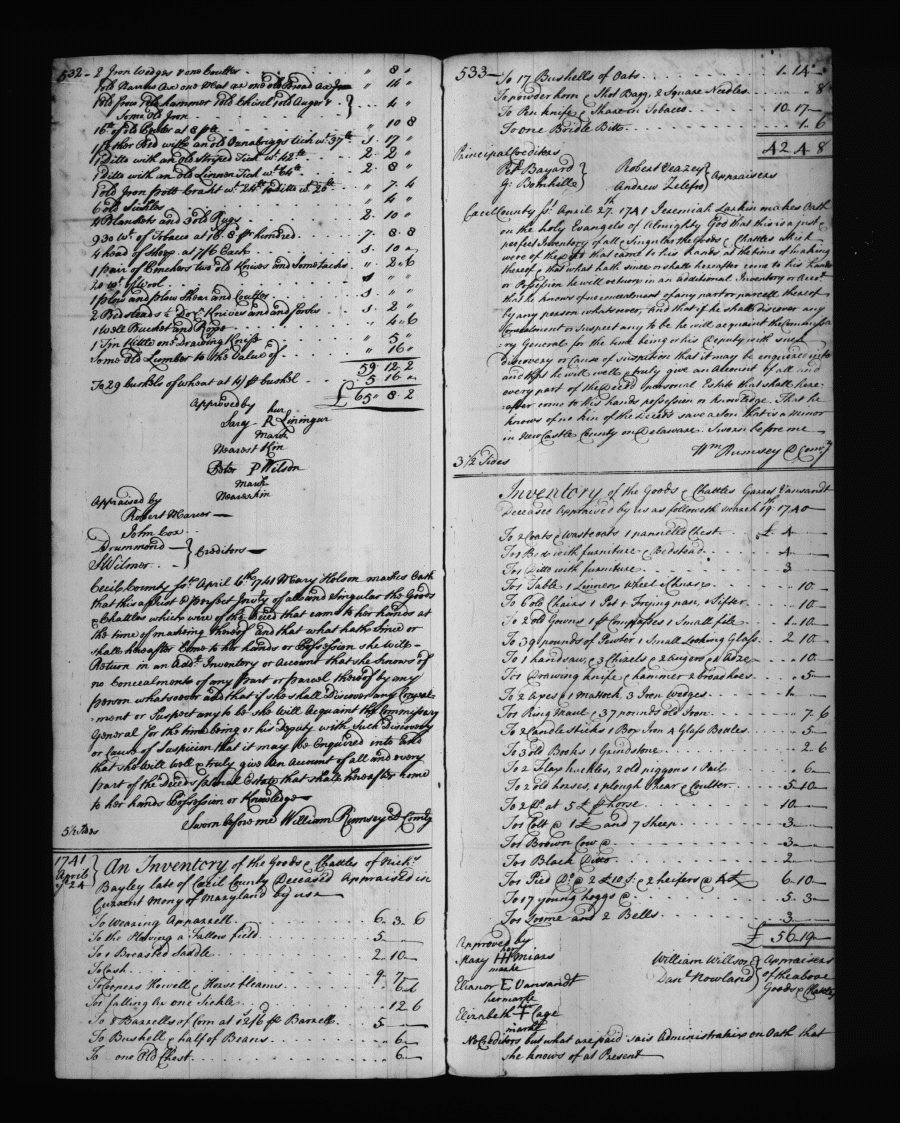 532 2 Iron Wedges & one Coulter " 8 "
1 old Narrow Axe one Mat ax one old Broad Ax " 14 "
1 old Hammer 1 old Chisel 1 old Auger & " 4 "
Some old Iron
16lb of old Pewter at 8 p lb " 10 8
1 feather Bed with an old Ornabriggs tick wt 37lb 1 17 "
1 ditto with an old Striped Tick wt 42lb 2 2 "
1 ditto with an old Linnen Tick wt 64lb 2 8 "
1 old Iron pott Crackt wt 24lb 1 ditto wt 20lb " 7 4
6 old Sickles " 4 "
4 Blankets and 3 old Rugs 2 10 "
930 wt of Tobacco at hundred 7 8 8
4 head of Sheep at 7/6 Each 1 10 "
1 pair of Pinchers two old Knives and some tacks " 2 6
20 wt of Wool 1 " "
1 plow and plow Shear and Coulter 1 " "
2 Bedsteads ½ Doz Knives and forks 1 2 "
1 Well Bucket and Rope " 4 6
1 Tin Kittle one Drawing Knife " 5 "
Some old Lumber to the Value of " 16 "
59 12 2
To 29 bushels of wheat at 4/ p bushel 5 16 "
£ 65 8 2
Approved by her
Sary R Lininger
Mark
Nearest Kin
Peter P Wilson
Mark
Near akin
Appraised by
Robert Mercer
John Cox
Drummond
J Wilmer } Creditors
Cecil County Sc. April 4th 1741 Mary Holson makes Oath
that this a Just & perfect Invty of all and Singular the Goods
& Chattles which were of the Deced that came to her hands at
the time of making thereof and that what hath Since or
shall hereafter Come to her hands or Possession she will
Return in an Addl Inventory or account that she knows of
no Concealments of any Part or Parcel thereof by any
Person whatsoever and that if she shall Discover any Conceal-
ment or Suspect any to be she will Acquaint the Commissary
General for the time being or his Deputy with Such Discovery
or Cause of Suspicion that it may be Enquired into And
that she will well & truly give An Account of all and every
Part of the Deceds personal Estate that shall hereafter Come
to her hands Possession or Knowledge
5½ Sides Sworn before me William Rumsey D Comry
1741 April ye 24 } An Inventory of the Goods & Chattles of Nichs
Bayley late of Cecil County Deceased Appraised in
Current mony of Maryland by us
To Wearing Apparrell 6 3 6
To the Plowing a Fallow field 5
To 1 Breasted Saddle 2 10
To Cash
To Coopers Howell & Horse fleams 6d
To 1 falling Ax one Sickle 12 6
To 8 Barrells of Corn at 12/6 p Barrell 5
To Bushell & half of Beans 6
To one Old Chest 6
533 To 17 Bushells of Oats 1 14
To powder horn & Shot Bagg, 2 Square Needles 8
To Pen knife & Share in Tobacco 10 17
To one Bridle Bitt 1 6
42 4 8
Principal Creditors
Pr Bayard
Robert Veazey
Andrew } Appraisers
Cecil County Sc. April 27th 1741 Jeremiah Larkin makes Oath
on the holy Evangels of Almighty God that this is a just &
perfect Inventory of all & Singular the Goods & Chattles which
were of the Decd that came to his hands at the time of making
thereof & that what hath since or shall hereafter come to his hands
or Possession he will return in an additional Inventory or Acct
that he knows of no concealment of any part or parcell thereof
by any person whatsoever, and that if he shall discover any
Concealment or Suspect any to be he will acquaint the Commissa
ry General for the time being or his Deputy with such
Discovery or Cause of suspition that it may be enquired into
and that he will well & truly give an Account of all and
every part of the Deceds personal Estate that shall here-
after come to his hands possession or knowledge. That he
knows of no kin of the Deceds save a Son that is a minor
in New Castle County on Delaware. Sworn before me
3½ Sides Wm Rumsey D Comry
Inventory of the Goods & Chattles Garret Vansandt
Deceased Appraised by us as followeth March 19th 1740
To 2 Coats & Wastcoats 1 pannelld Chest £ 4
To 1 Bed with furniture & Bedstead 4
To 1 Ditto with furniture 3
To 1 Table 1 Linnen Wheel & 10
To 6 old Chairs 1 Pot 1 Frying pan, 1 Sifter 10
To 2 old Gowns 1 pr Compasses 1 Small file 1 10
To 39 pounds of Pewter 1 Small Looking Glass 2 10
To 1 handsaw, & 3 Chizels & 2 Augers & Adze 10
To 1 Drawing knife & hammer 2 broad hoes 5
To 2 Axes & 1 Mattock 3 Iron Wedges 1
To 1 Ring Maul & 37 pounds old Iron 7 6
To 2 Candlesticks 1 Box Iron 4 Glass Bottles 5
To 3 old Books 1 Grindstone 2 6
To 2 Flax huckles, 2 old piggons 1 Pail 6
To 2 old horses, 1 plough Shear & Coulter 5 10
To 2 Do at 5 £ p horse 10
To 1 Colt @ 1 £ and 7 Sheep 3
To 1 Brown Cow @ 3
To 1 Black Ditto 2
To 1 Pied Do @ 2 £ 10 S & 2 heifers @ 4 £ 6 10
To 17 young hoggs @ 5 3
To 1 Loome and 2 Bells 3
£ 56 19
Approved by
her
Mary H Miars
marke
Elianor E Vansandt
her marke
Elizabeth F Cage
marke
William Willson
Danl Nowland } Appraisers
of the above
Goods & Chattles
No Creditors but what are paid said Administratrix on Oath that
she knows of at Present